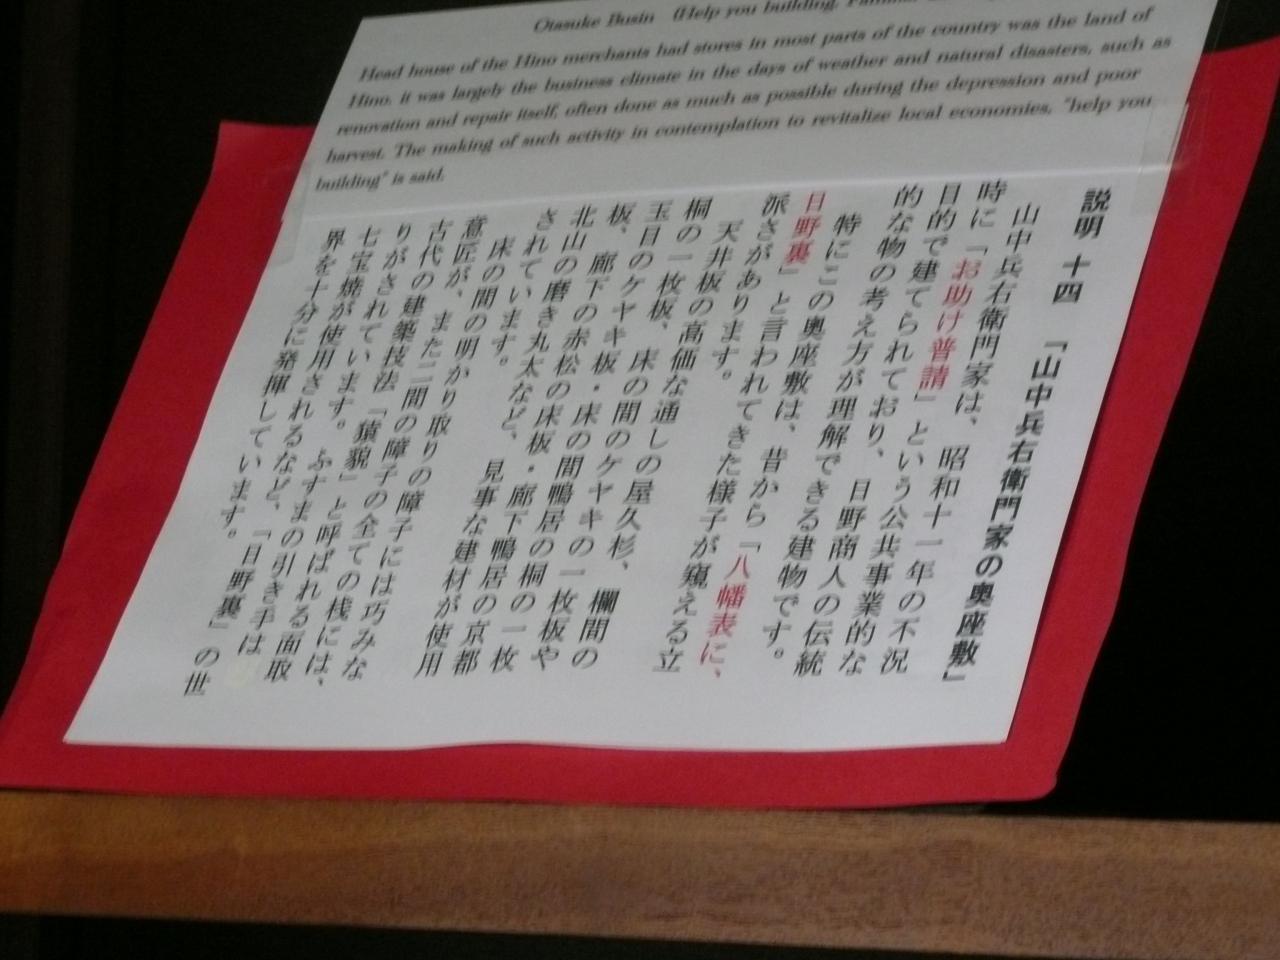 Otasuke Busin (Help you building,
Head house of the Hino merchants had stores in most parts of the country was the land of
Hino, it was largely the business climate in the days of weather and natural disasters, such as
renovation and repair itself, often done as much as possible during the depression and poor
harvest. The making of such activity in contemplation to revitalize local economies, "help you
building" is said.
説明 十四 「山中兵右衛門家の奥座敷」
山中兵右衛門家は、昭和十一年の不況
時に「お助け普請」という公共事業的な
目的で建てられており、日野商人の伝統
的な物の考え方が理解できる建物です。
特にこの奥座敷は、昔から「八幡表に、
日野裏」と言われてきた様子が窺える立
派さがあります。
天井板の高価な通しの屋久杉、欄間の
桐の一枚板、床の間のケヤキの一枚板や
玉目のケヤキ板・床の間鴨居の桐の一枚
板、廊下の赤松の床板・廊下鴨居の京都
北山の磨き丸太など、見事な建材が使用
されています。
床の間の明かり取りの障子には巧みな
意匠が、また二間の障子の全ての桟には、
古代の建築技法「猿貌」と呼ばれる面取
りがされています。ふすまの引き手は
七宝焼が使用されるなど、「日野裏」の世
界を十分に発揮しています。